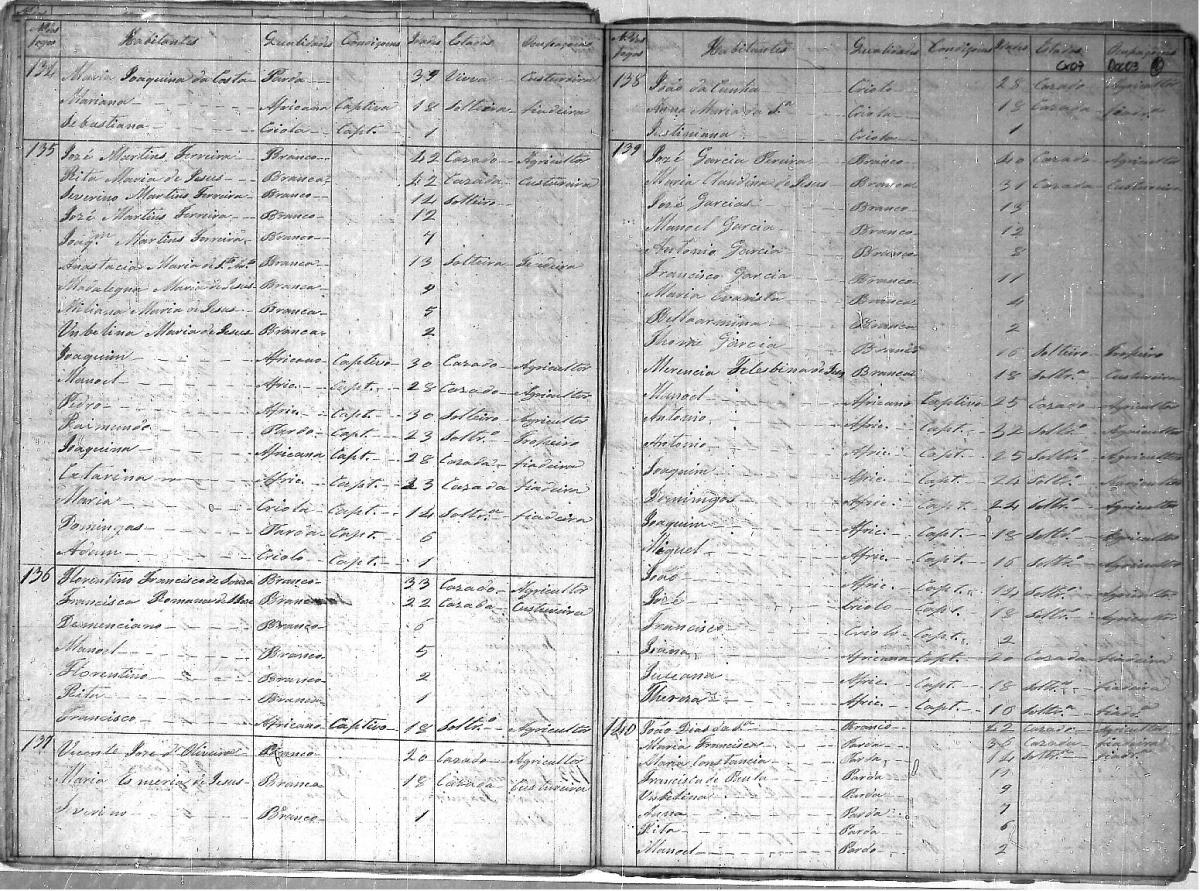 Nº dos Fogos Habitantes Qualidades Condiçoens Idades Estados Ocupaçoens
134 Maria Joaquina da Costa Parda 39 Viuva Custureira
Mariana Africana Captiva 18 Solteira fiadeira
Sebastiana Criola Capt.ª 1
135 José Martins Ferreira Branco 42 Cazado Agricultor
Rita Maria de Jesus Branca 42 Cazada Custureira
Severino Martins Ferreira Branco 14 Solteiro
José Martins Ferreira Branco 12
Joaq.m Martins Ferreira Branco 7
Anastacia Maria de Branca 13 Solteira Fiadeira
Madalegna Maria de Jesus Branca 9
Miliana Maria de Jesus Branca 5
Umbelina Maria de Jesus Branca 2
Joaquim Africano Captivo 30 Cazado Agricultor
Manoel Afric. Capt. 28 Cazado Agricultor
Pedro Afric. Capt. 30 Solteiro Agricultor
Raimundo Pardo Capt. 23 Soltr.º Tropeiro
Joaquina Africana Capt. 28 Cazada fiadeira
Catarina Afric. Capt. 23 Cazada fiadeira
Maria Criola Capt. 14 Soltr.ª fiadeira
Domingas Parda Capt. 6
Adam Criolo Capt. 1
136 Florentino Francisco de Souza Branco 33 Cazado Agricultor
Francisca Romana de Branca 22 Cazada Custureira
Demenciano Branco 6
Manoel Branco 5
Florentino Branco 2
Rita Branca 1
Francisco Africano Captivo 18 Soltr.º Agricultor
137 Vicente Jose d'Oliveira Branco 20 Cazado Agricultor
Maria Esmeria de Jesus Branca 18 Cazada Custureira
Severino Branco 1
Nº dos Fogos Habitantes Qualidades Condiçoens Idades Estados Ocupaçoens
Cx07 Doc03
138 João da Cunha Criolo 28 Cazado Agricultor
Anna Maria da S.ª Criola 18 Cazada
Criola 1
139 José Garcia Pereira Branco 40 Cazado Agricultor
Maria Claudina de Jesus Branca 31 Cazada Custureira
José Garcias Branco 13
Manoel Garcia Branco 12
Antonio Garcia Branco 8
Francisco Garcia Branco 11
Maria Evarista Branca 4
Bellarmina Branca 2
Garcia Branco 16 Solteiro Tropeiro
Merencia Felesbina de Jesus Branca 18 Soltr.ª Custureira
Manoel Africano Captivo 25 Cazado Agricultor
Antonio Afric. Capt. 32 Soltr.º Agricultor
Antonio Afric. Capt. 25 Soltr.º Agricultor
Joaquim Afric. Capt. 24 Soltr.º Agricultor
Domingos Afric. Capt. 24 Soltr.º Agricultor
Joaquim Afric. Capt. 18 Soltr.º Agricultor
Miguel Afric. Capt. 16 Soltr.º Agricultor
João Afric. Capt. 14 Soltr.º Agricultor
José Criolo Capt. 18 Soltr.º Agricultor
Francisco Criolo Capt. 2
Joana Africana Capt. 20 Cazada fiadeira
Juliana Afric. Capt. 18 Soltr.ª fiadeira
Thereza Afric. Capt. 10 Soltr.ª fiad.ª
140 João Dias da S.ª Branco 42 Cazado Agricultor
Maria Francisca Parda 36 Cazada fiadeira
Maria Constancia Parda 14 Soltr.ª fiad.ª
Francisca de Paula Parda 11
Umbelina Parda 9
Anna Parda 7
Rita Parda 6
Manoel Pardo 2